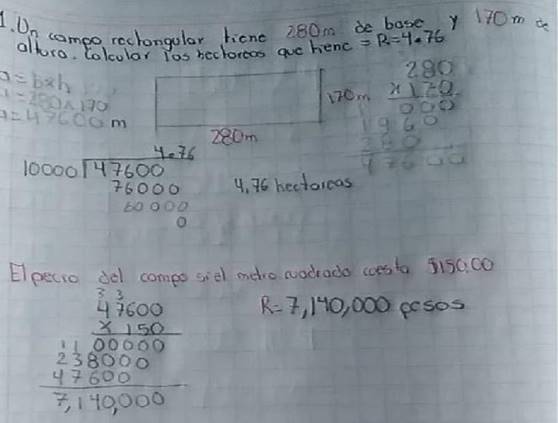 1. Un campo rectangular tiene 280m de base y 170m de
altura. Calcular las hectareas que tiene = R=4.76
a=bxh
a=280x170
a=47600m
170m
280m
280
x170
000
1960
280
47600
4.76
10000 47600
76000
60000
0
4,76 hectareas
El pecio del campo si el metro cuadrado cuesta $150.00
33
47600
x 150
11
00000
238000
47600
7,140,000
R=7,140,000 pesos